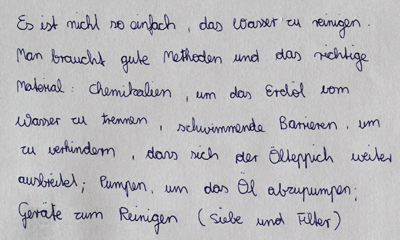 Es ist nicht so einfach, das Wasser zu reinigen.
Man braucht gute Methoden und das richtige
Material: Chemikalien, um das Erdöl vom
Wasser zu trennen, schwimmende Barrieren, um
zu verhindern, dass sich der Ölteppich weiter
ausbreitet; Pumpen, um das Öl abzupumpen;
Geräte zum Reinigen (Siebe und Filter)